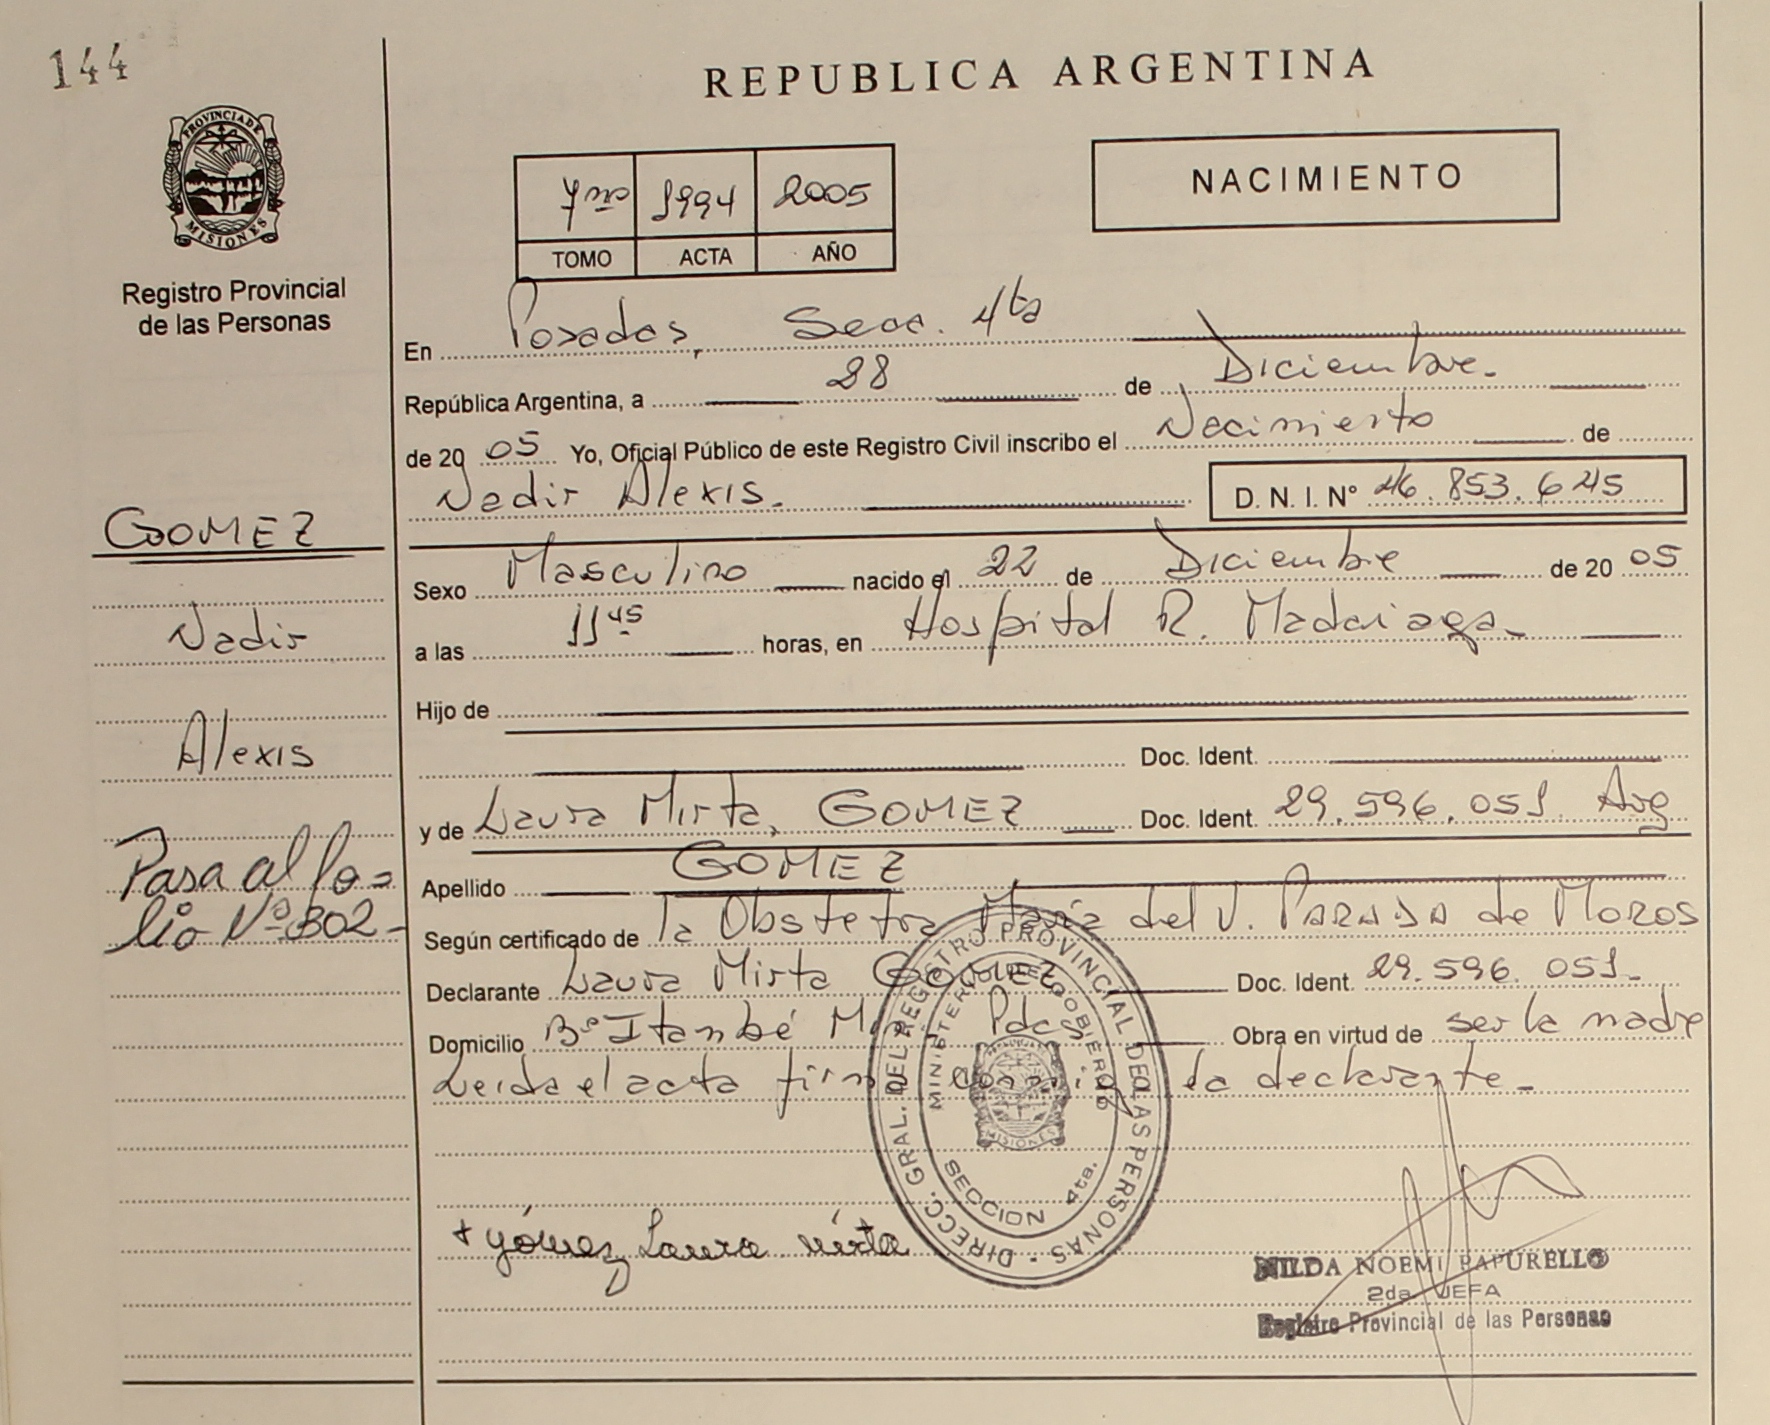 144
REPUBLICA ARGENTINA
PROVINCIA DE
MISIONES
Registro Provincial
de las Personas
7mo 1994 2005
TOMO ACTA AÑO
NACIMIENTO
En Posadas, Secc. 4ta
República Argentina, a 28 de Diciembre.
de 20 05 Yo, Oficial Público de este Registro Civil inscribo el Nacimiento de
Nadir Alexis. D. N. I. Nº 46.853.645
GOMEZ
Nadir
Alexis
Pasa al fo=
lio Nº 302-
Sexo Masculino nacido el 22 de Diciembre de 20 05
a las 11 45 horas, en Hospital R. Madariaga.
Hijo de
Doc. Ident.
y de Laura Mirta, GOMEZ Doc. Ident. 29.596.051 Arg
Apellido GOMEZ
Según certificado de la Obstetra María del V. PARADA de MOROS
Declarante Laura Mirta GOMEZ Doc. Ident. 29.596.051-
Domicilio Bº Itambé Miní Pdas Obra en virtud de ser la madre
Leida el acta firma conmigo la declarante-
DIRECC. GRAL. DEL REGISTRO PROVINCIAL DE LAS PERSONAS -
MINISTERIO DE GOBIERNO
MISIONES
SECCION 4ta.
+ Gómez Laura mirta
NILDA NOEMI PAPURELLO
2da JEFA
Registro Provincial de las Personas